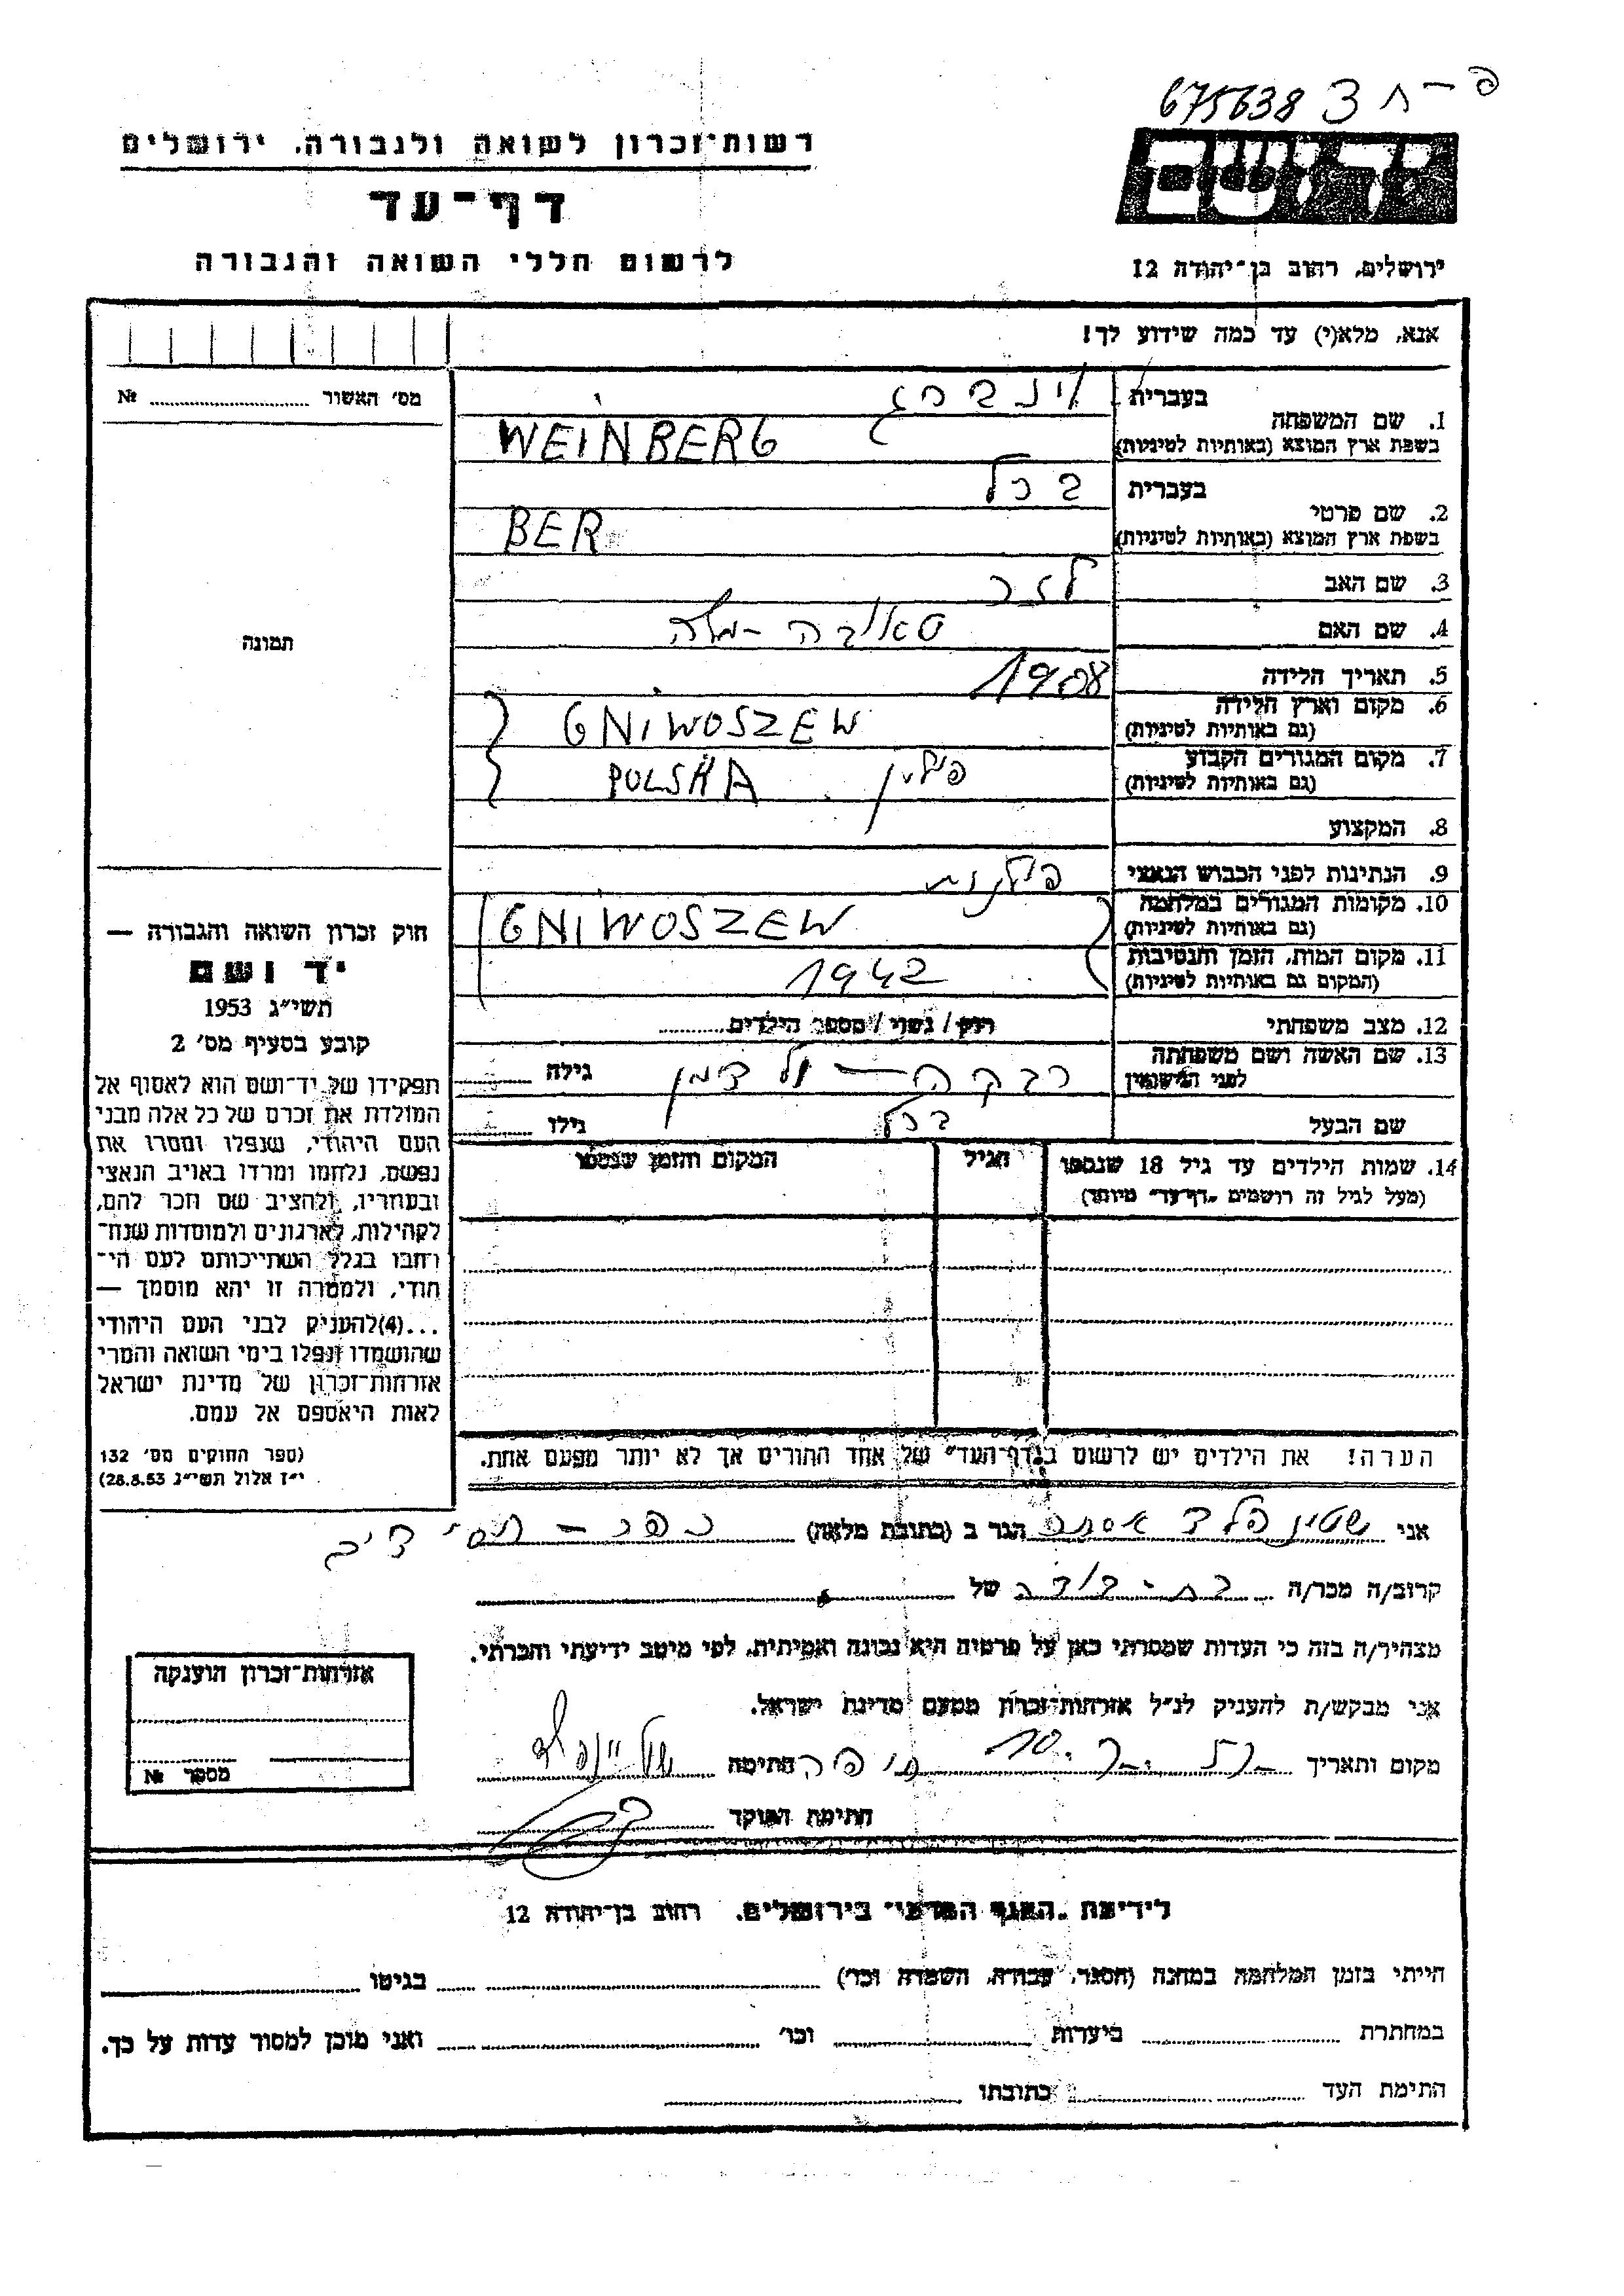 675638 פ-ח 3
רשות־זכרון לשואה ולגבורה, ירושלים
דף־עד
לרשום חללי השואה והגבורה
יד ושם
ירושלים, רחוב בן־יהודה 12
אנא, מלא(י) עד כמה שידוע לך!
מס׳ האשור № 
תמונה
חוק זכרון השואה והגבורה —
יד ושם
תשי״ג 1953
קובע בסעיף מס׳ 2
תפקידו של יד־ושם הוא לאסוף אל
המולדת את זכרם של כל אלה מבני
העם היהודי, שנפלו ומסרו את
נפשם, נלחמו ומרדו באויב הנאצי
ובעוזריו, ולהציב שם וזכר להם,
לקהילות, לארגונים ולמוסדות שנח־
רחבו בגלל השתייכותם לעם הי־
הודי, ולמטרה זו יהא מוסמך —
...(4) להעניק לבני העם היהודי
שהושמדו ונפלו בימי השואה והמרי
אזרחות־זכרון של מדינת ישראל
לאות היאספם אל עמם.
(ספר החוקים מס׳ 132
י״ז אלול תשי״ג 28.8.53)
1. שם המשפחה
בעברית וינברג
בשפת ארץ המוצא (באותיות לטיניות) WEINBERG
2. שם פרטי
בעברית ברל
בשפת ארץ המוצא (באותיות לטיניות) BER
3. שם האב לזר
4. שם האם טאובה - מלה
5. תאריך הלידה 1908
6. מקום וארץ הלידה (גם באותיות לטיניות) GNIWOSZEW
7. מקום המגורים הקבוע (גם באותיות לטיניות) פולין POLSKA
8. המקצוע
9. הנתינות לפני הכבוש הנאצי פולנית
10. מקומות המגורים במלחמה (גם באותיות לטיניות) GNIWOSZEW
11. מקום המות, הזמן והנסיבות (המקום גם באותיות לטיניות) 1942
12. מצב משפחתי רווק / נשוי / מספר הילדים
13. שם האשה ושם משפחתה לפני הנישואין רבקה — ולדמן גילה
שם הבעל ברל גילו
14. שמות הילדים עד גיל 18 שנספו (מעל לגיל זה רושמים „דף־עד״ מיוחד) הגיל המקום והזמן שנספו
הערה! את הילדים יש לרשום ב„דף־העד״ של אחד ההורים אך לא יותר מפעם אחת.
אני שטיינפלד אסתר הגר ב (כתובת מלאה) כפר - חסידים
קרוב/ה מכר/ה בת - דודה של
מצהיר/ה בזה כי העדות שמסרתי כאן על פרטיה היא נכונה ואמיתית, לפי מיטב ידיעתי והכרתי.
אני מבקש/ת להעניק לנ״ל אזרחות־זכרון מטעם מדינת ישראל.
מקום ותאריך חיפה חתימה
חתימת הפוקד
אזרחות־זכרון הוענקה
מספר №
לידיעת „הגוף המרכזי״ בירושלים, רחוב בן־יהודה 12
הייתי בזמן המלחמה במחנה (הסגר, עבודה, השמדה וכר׳) בגיטו
במחתרת ביערות וכר׳ ואני מוכן למסור עדות על כך.
חתימת העד כתובתו